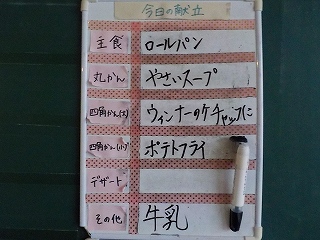 今日の献立
主食 ロールパン
丸かん やさいスープ
四角かん(大) ウィンナーのケチャップに
四角かん(小) ポテトフライ
デザート
その他 牛乳